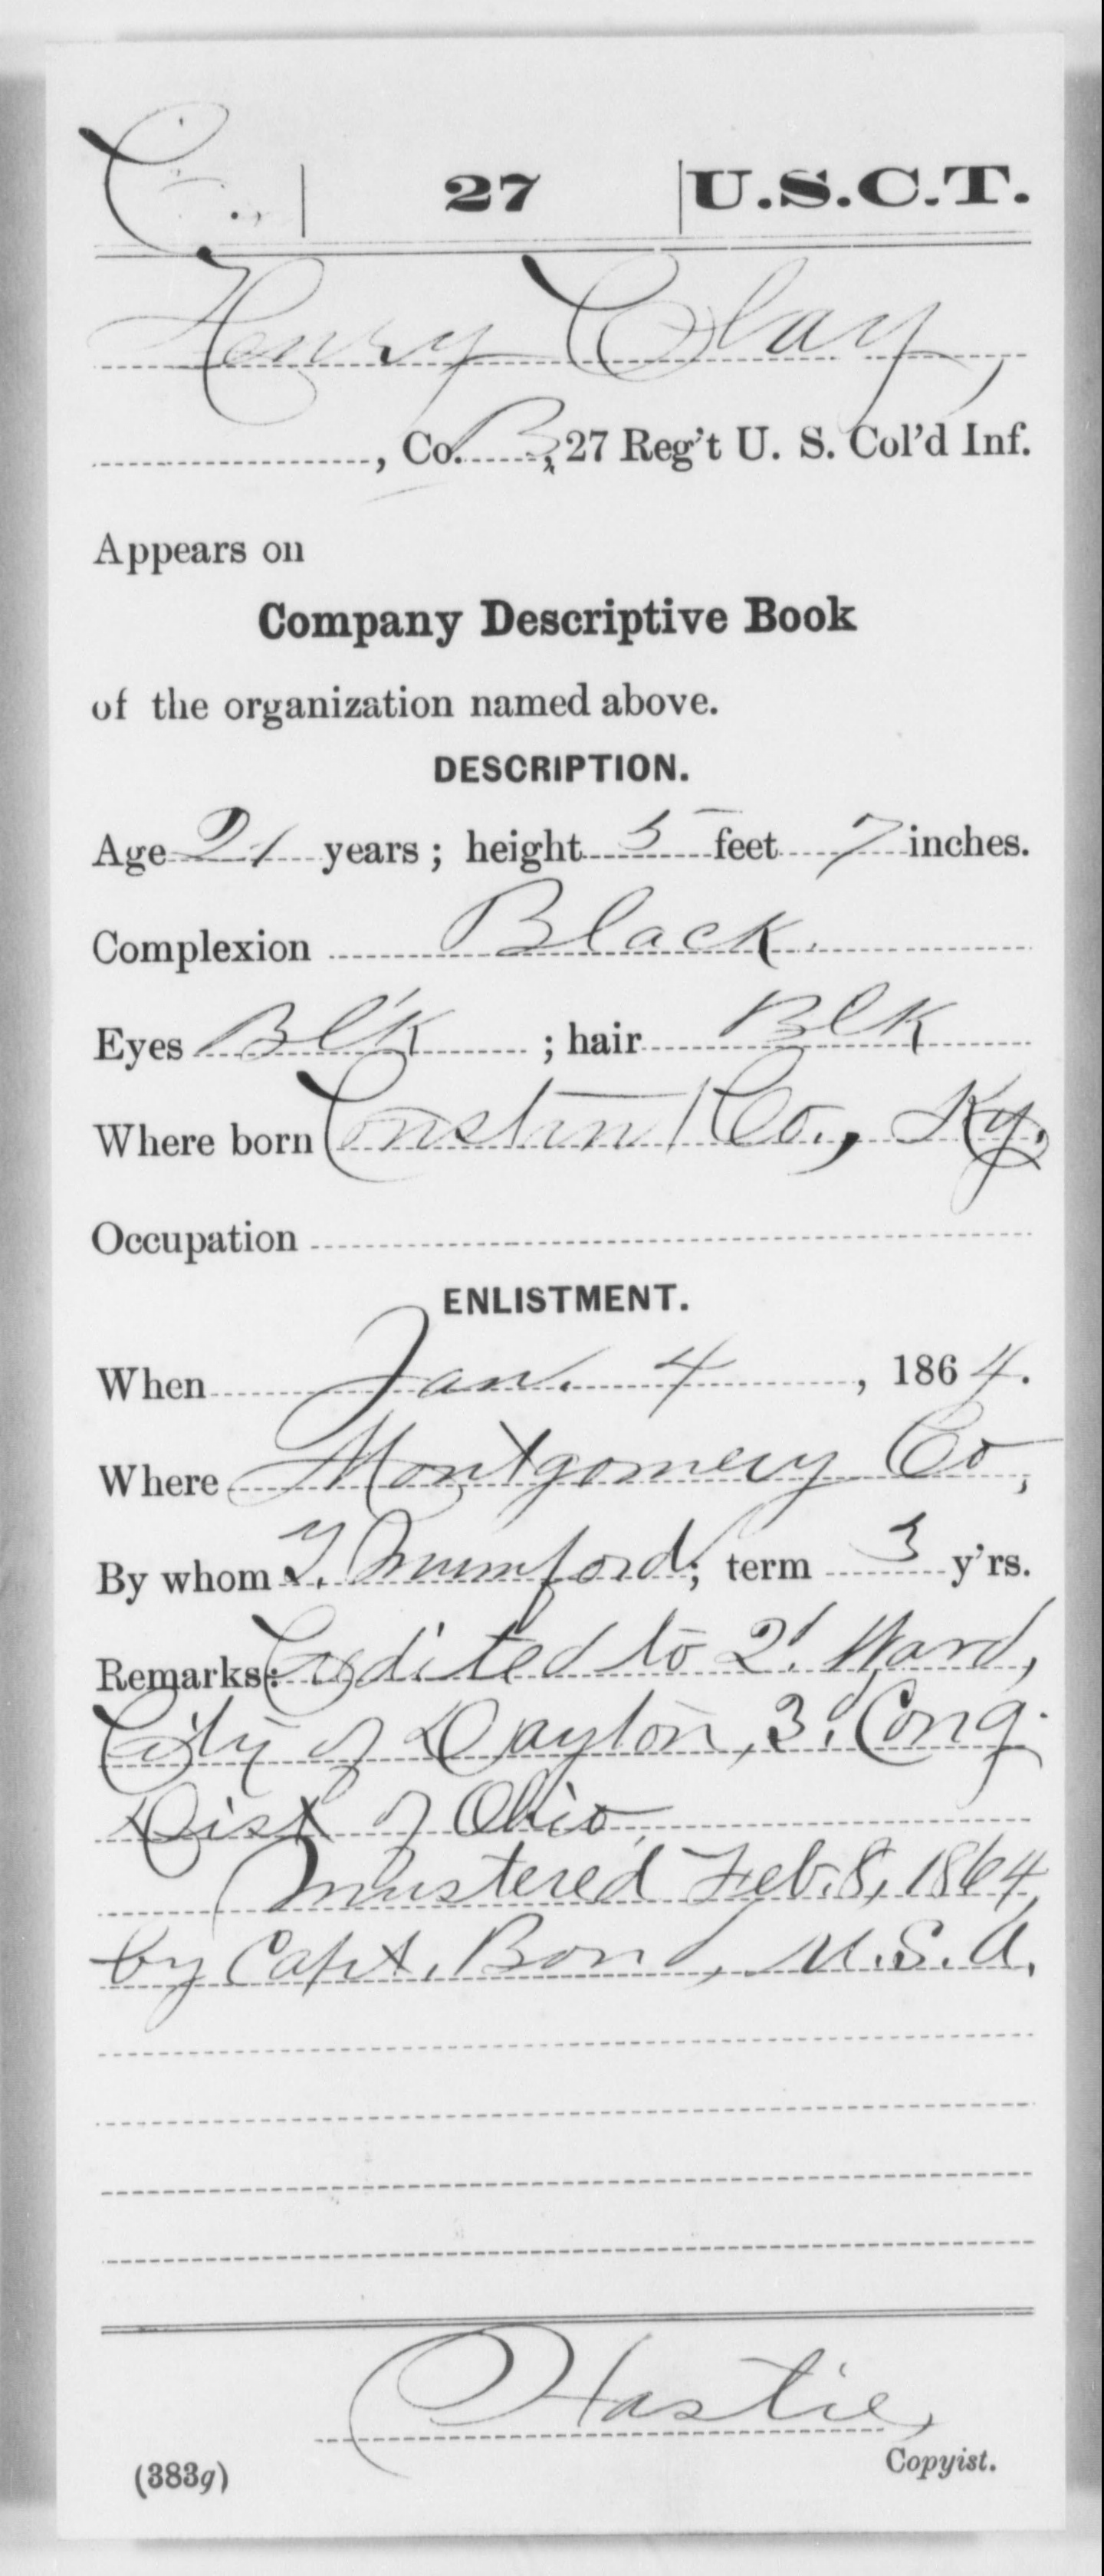 C. | 27 | U.S.C.T.
Henry Clay,
, Co. B, 27 Reg't U. S. Col'd Inf.
Appears on
Company Descriptive Book
of the organization named above.
DESCRIPTION.
Age 21 years; height 5 feet 7 inches.
Complexion Black.
Eyes Bl'k ; hair Blk
Where born Co., Ky.
Occupation
ENLISTMENT.
When Jan. 4, 1864.
Where Montgomery Co,
By whom Mumford; term 3 y'rs.
Remarks: Credited to 2d Ward,
City of Dayton, 3d Cong.
Dist of Ohio.
Mustered Feb. 8, 1864,
by Capt. Bond, U.S.A.
Hastie,
Copyist.
(383g)